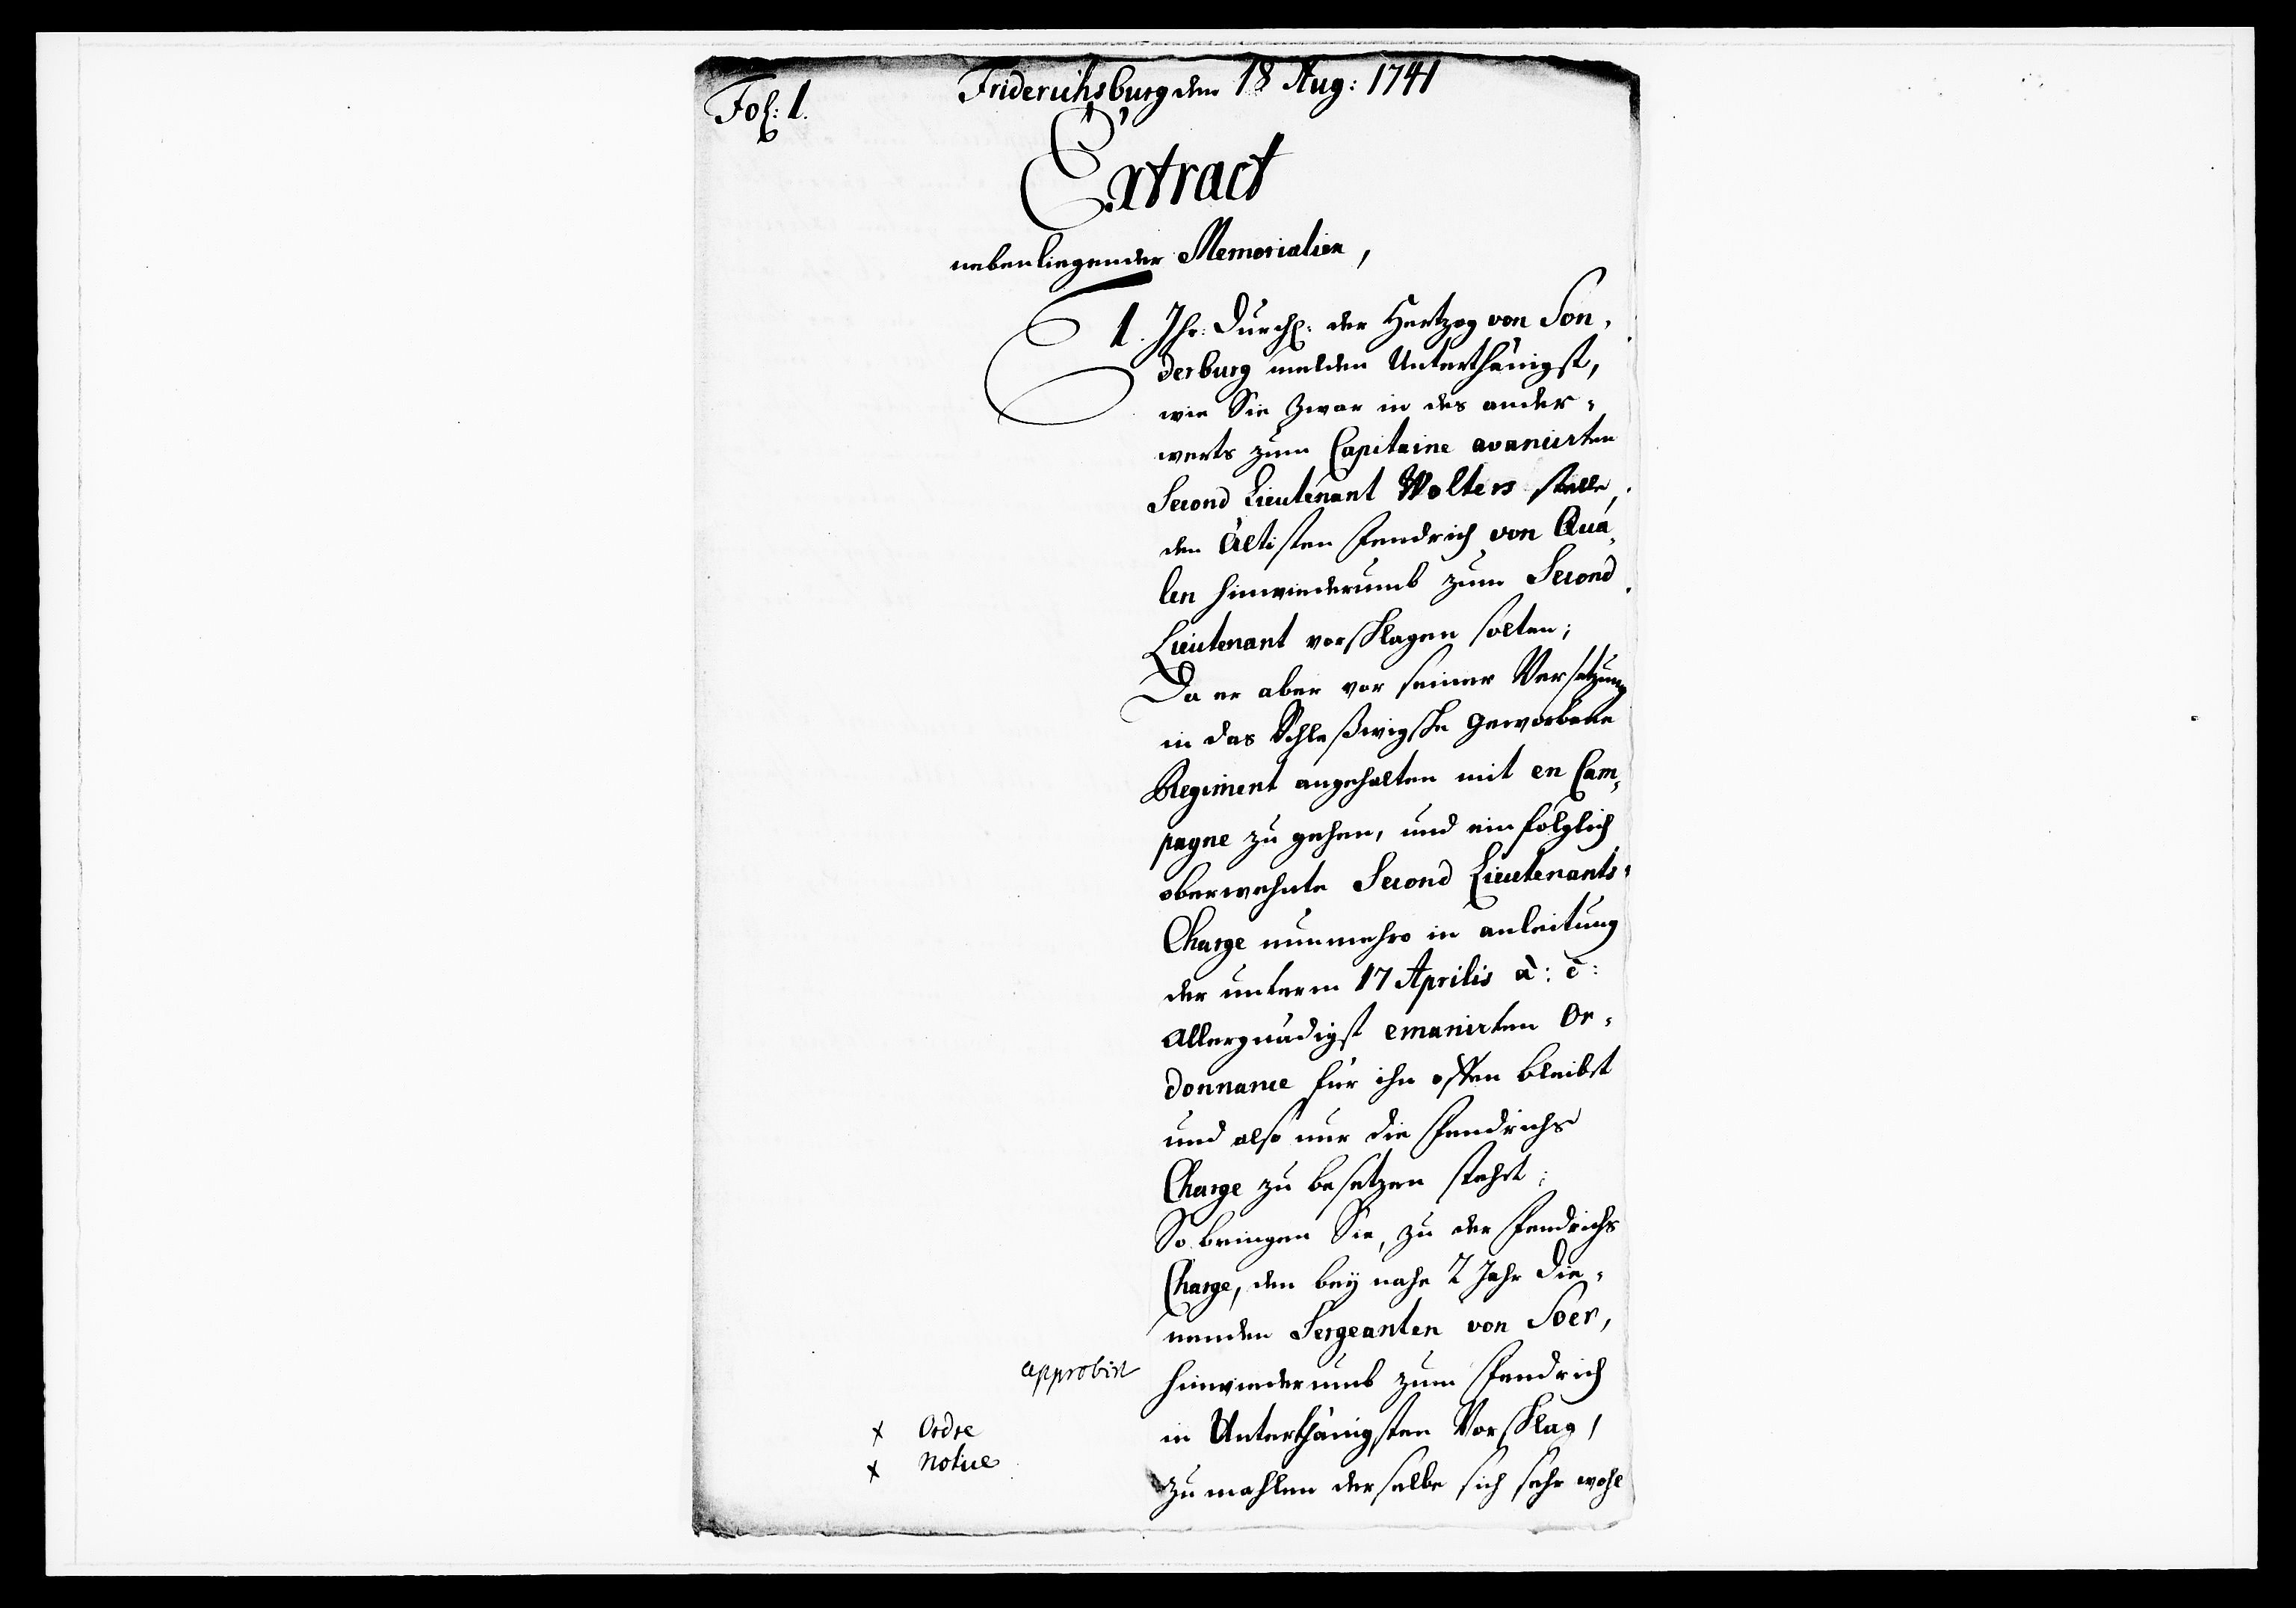 Fol: 1.
Friderichsburg den 18 Aug: 1741
Extract
nebenliegender Memorialien,
1. Ihr: Durchl: der Hertzog von Son-
derburg melden Unterthänigst,
wie Sie zwar in des ander-
werts zum Capitaine avancirten
Second Lieutenant Wolters stelle,
den Ältisten Fendrich von Qua-
len hinwiederumb zum Second
Lieutenant vorschlagen solten;
Da er aber vor seiner Versetzung
in das Schleßwigsche geworbene
Regiment angehalten mit en Cam-
pagne zu gehen, und ein folglich
oberwehnte Second Lieutenants-
Charge nunmehro in anleitung
der unterm 17 Aprilis a: c:
Allergnädigst emanirten Or-
donnance für ihn offen bleibt
und also nur die Fendrichs
Charge zu besetzen stehet;
So bringen Sie, zu der Fendrichs
Charge, den bey nahe 2 Jahr die-
nenden Sergeanten von Soer,
approbirt
hinwiederumb zum Fendrich
x Ordre
in Unterthänigsten Vorschlag,
x Notice
zu mahlen derselbe sich sehr wohl